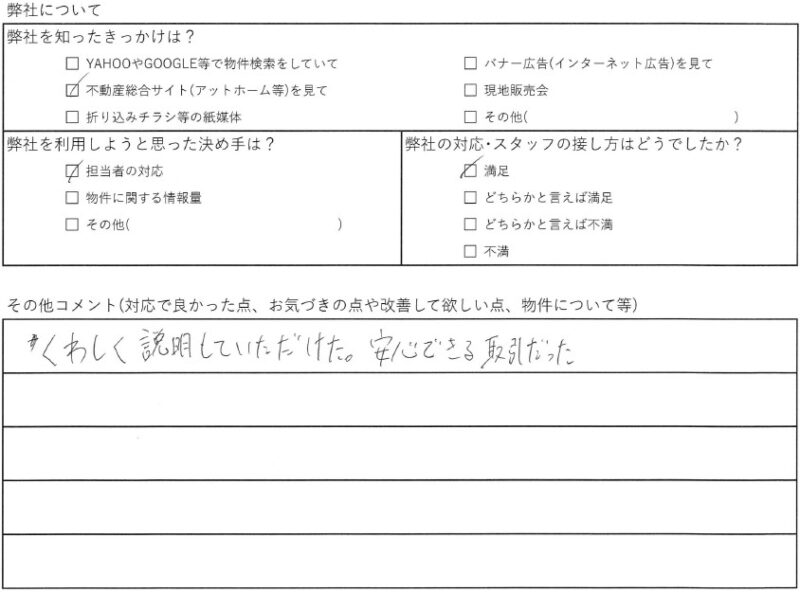 弊社について
弊社を知ったきっかけは？
□ YAHOOやGOOGLE等で物件検索をしていて
□ バナー広告(インターネット広告)を見て
☑ 不動産総合サイト(アットホーム等)を見て
□ 現地販売会
□ 折り込みチラシ等の紙媒体
□ その他( )
弊社を利用しようと思った決め手は？
☑ 担当者の対応
□ 物件に関する情報量
□ その他( )
弊社の対応・スタッフの接し方はどうでしたか？
☑ 満足
□ どちらかと言えば満足
□ どちらかと言えば不満
□ 不満
その他コメント(対応で良かった点、お気づきの点や改善して欲しい点、物件について等)
くわしく説明していただけた。安心できる取引だった